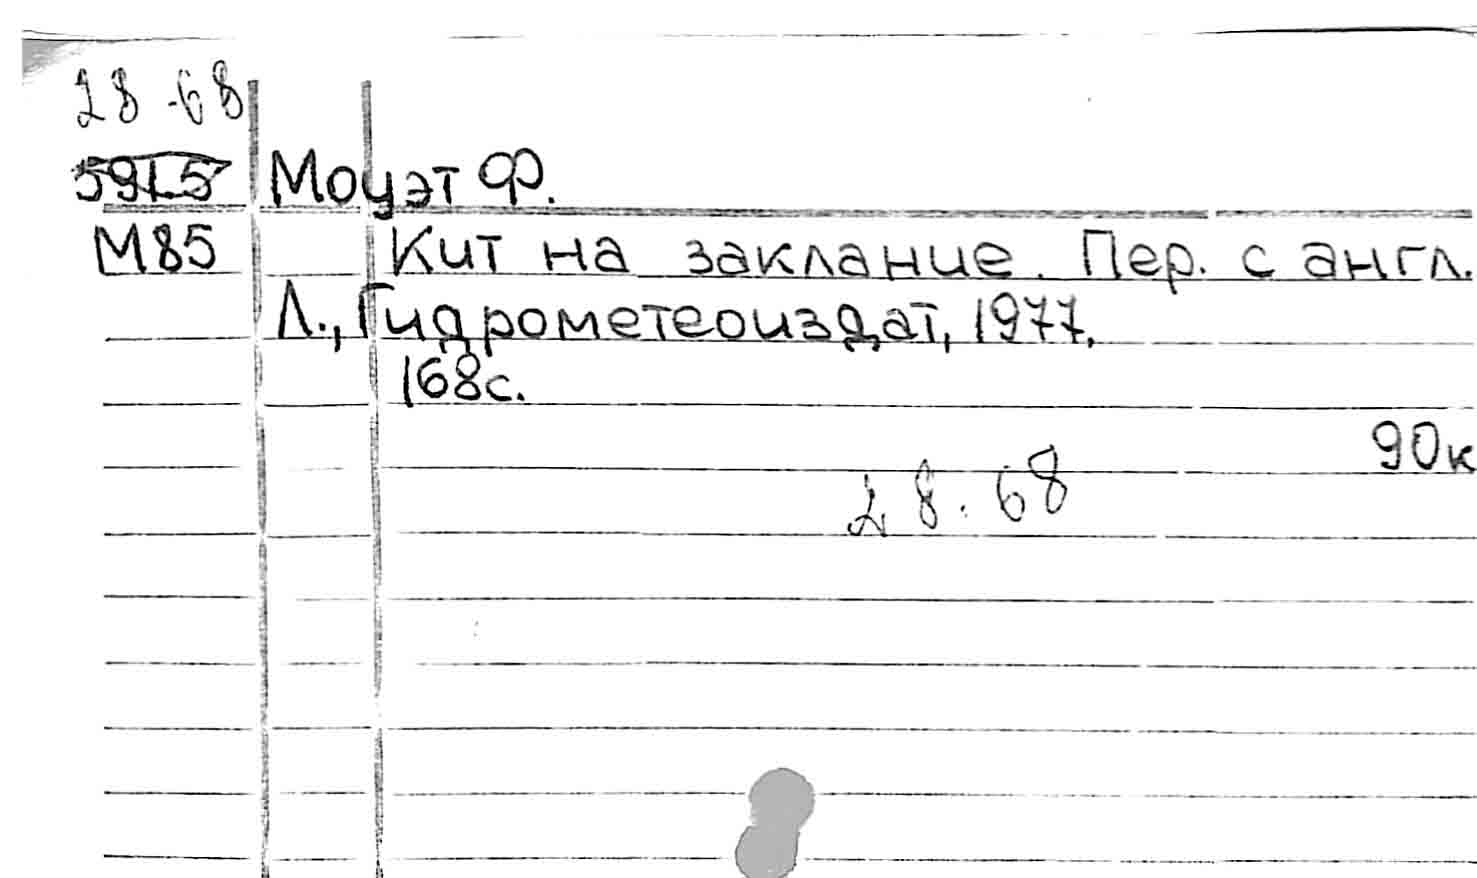 28.68
591.5 Моуэт Ф.
М85 Кит на заклание. Пер. с англ.
Л., Гидрометеоиздат, 1977.
168с.
90к
28.68